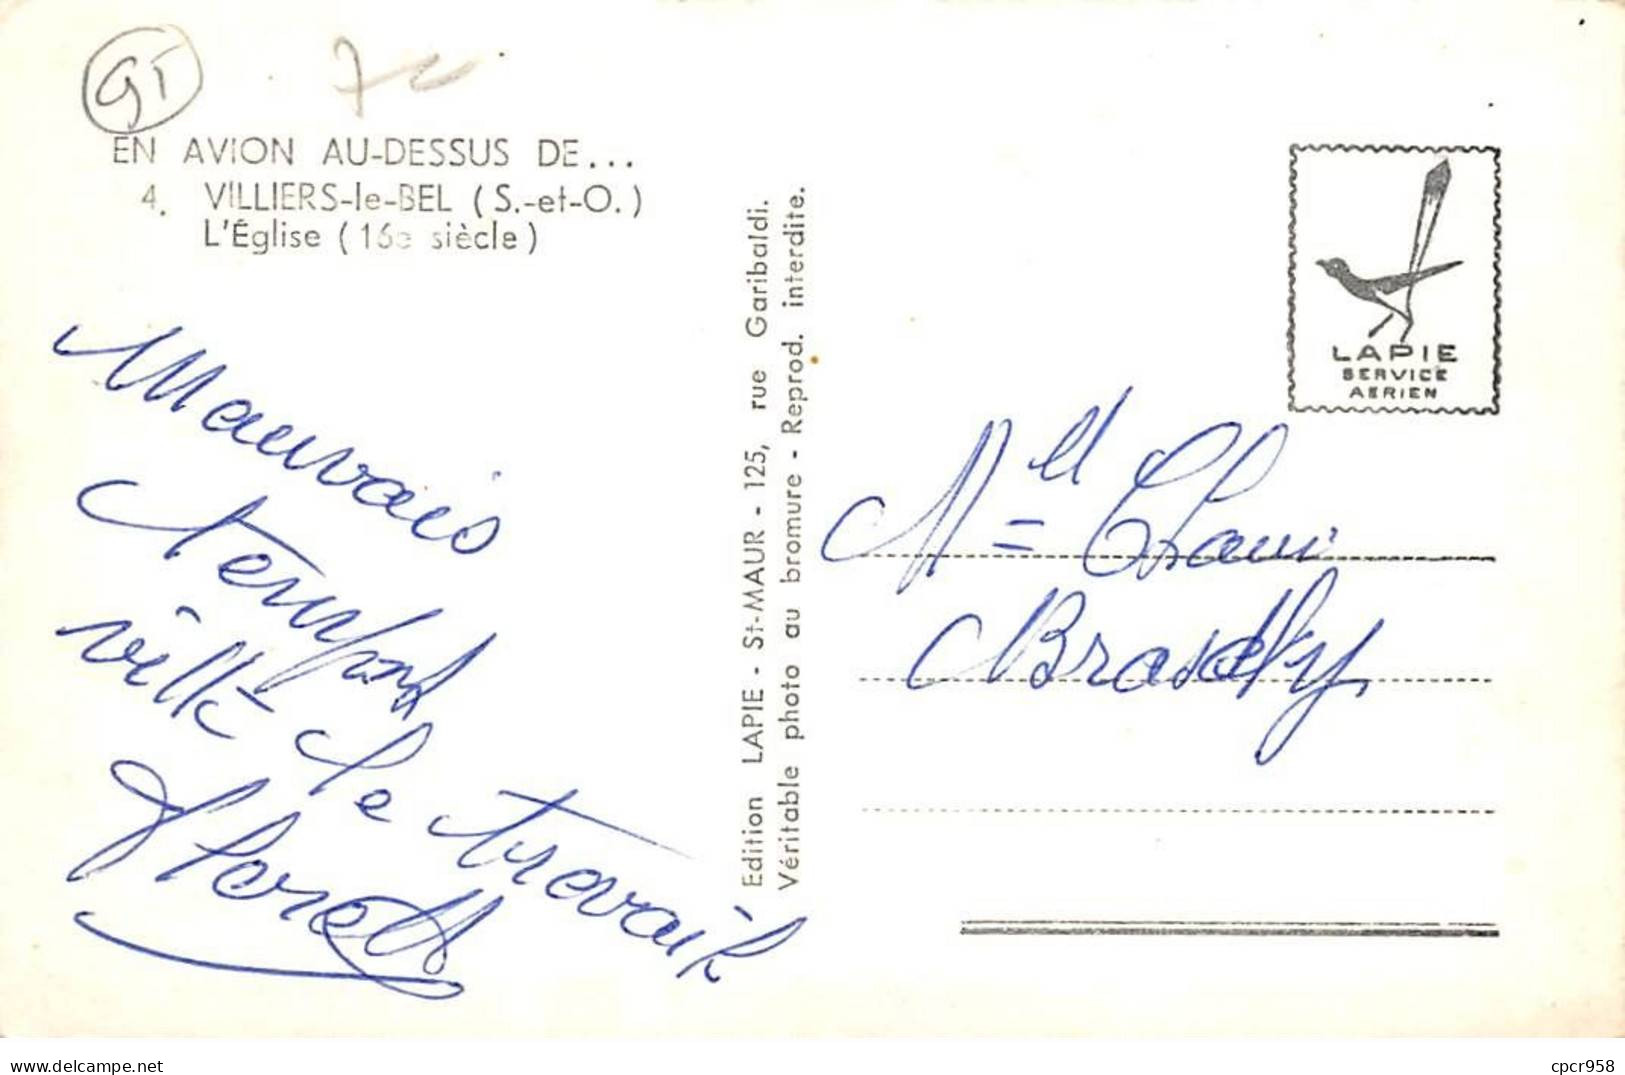 95
EN AVION AU-DESSUS DE...
4. VILLIERS-le-BEL (S.-et-O.)
L'Église (16e siècle)
Mauvais
temps
vive le travail
Edition LAPIE - St-MAUR - 125, rue Garibaldi.
Véritable photo au bromure - Reprod. interdite.
LAPIE
SERVICE
AERIEN
Mlle
delcampe.net
cpcr958